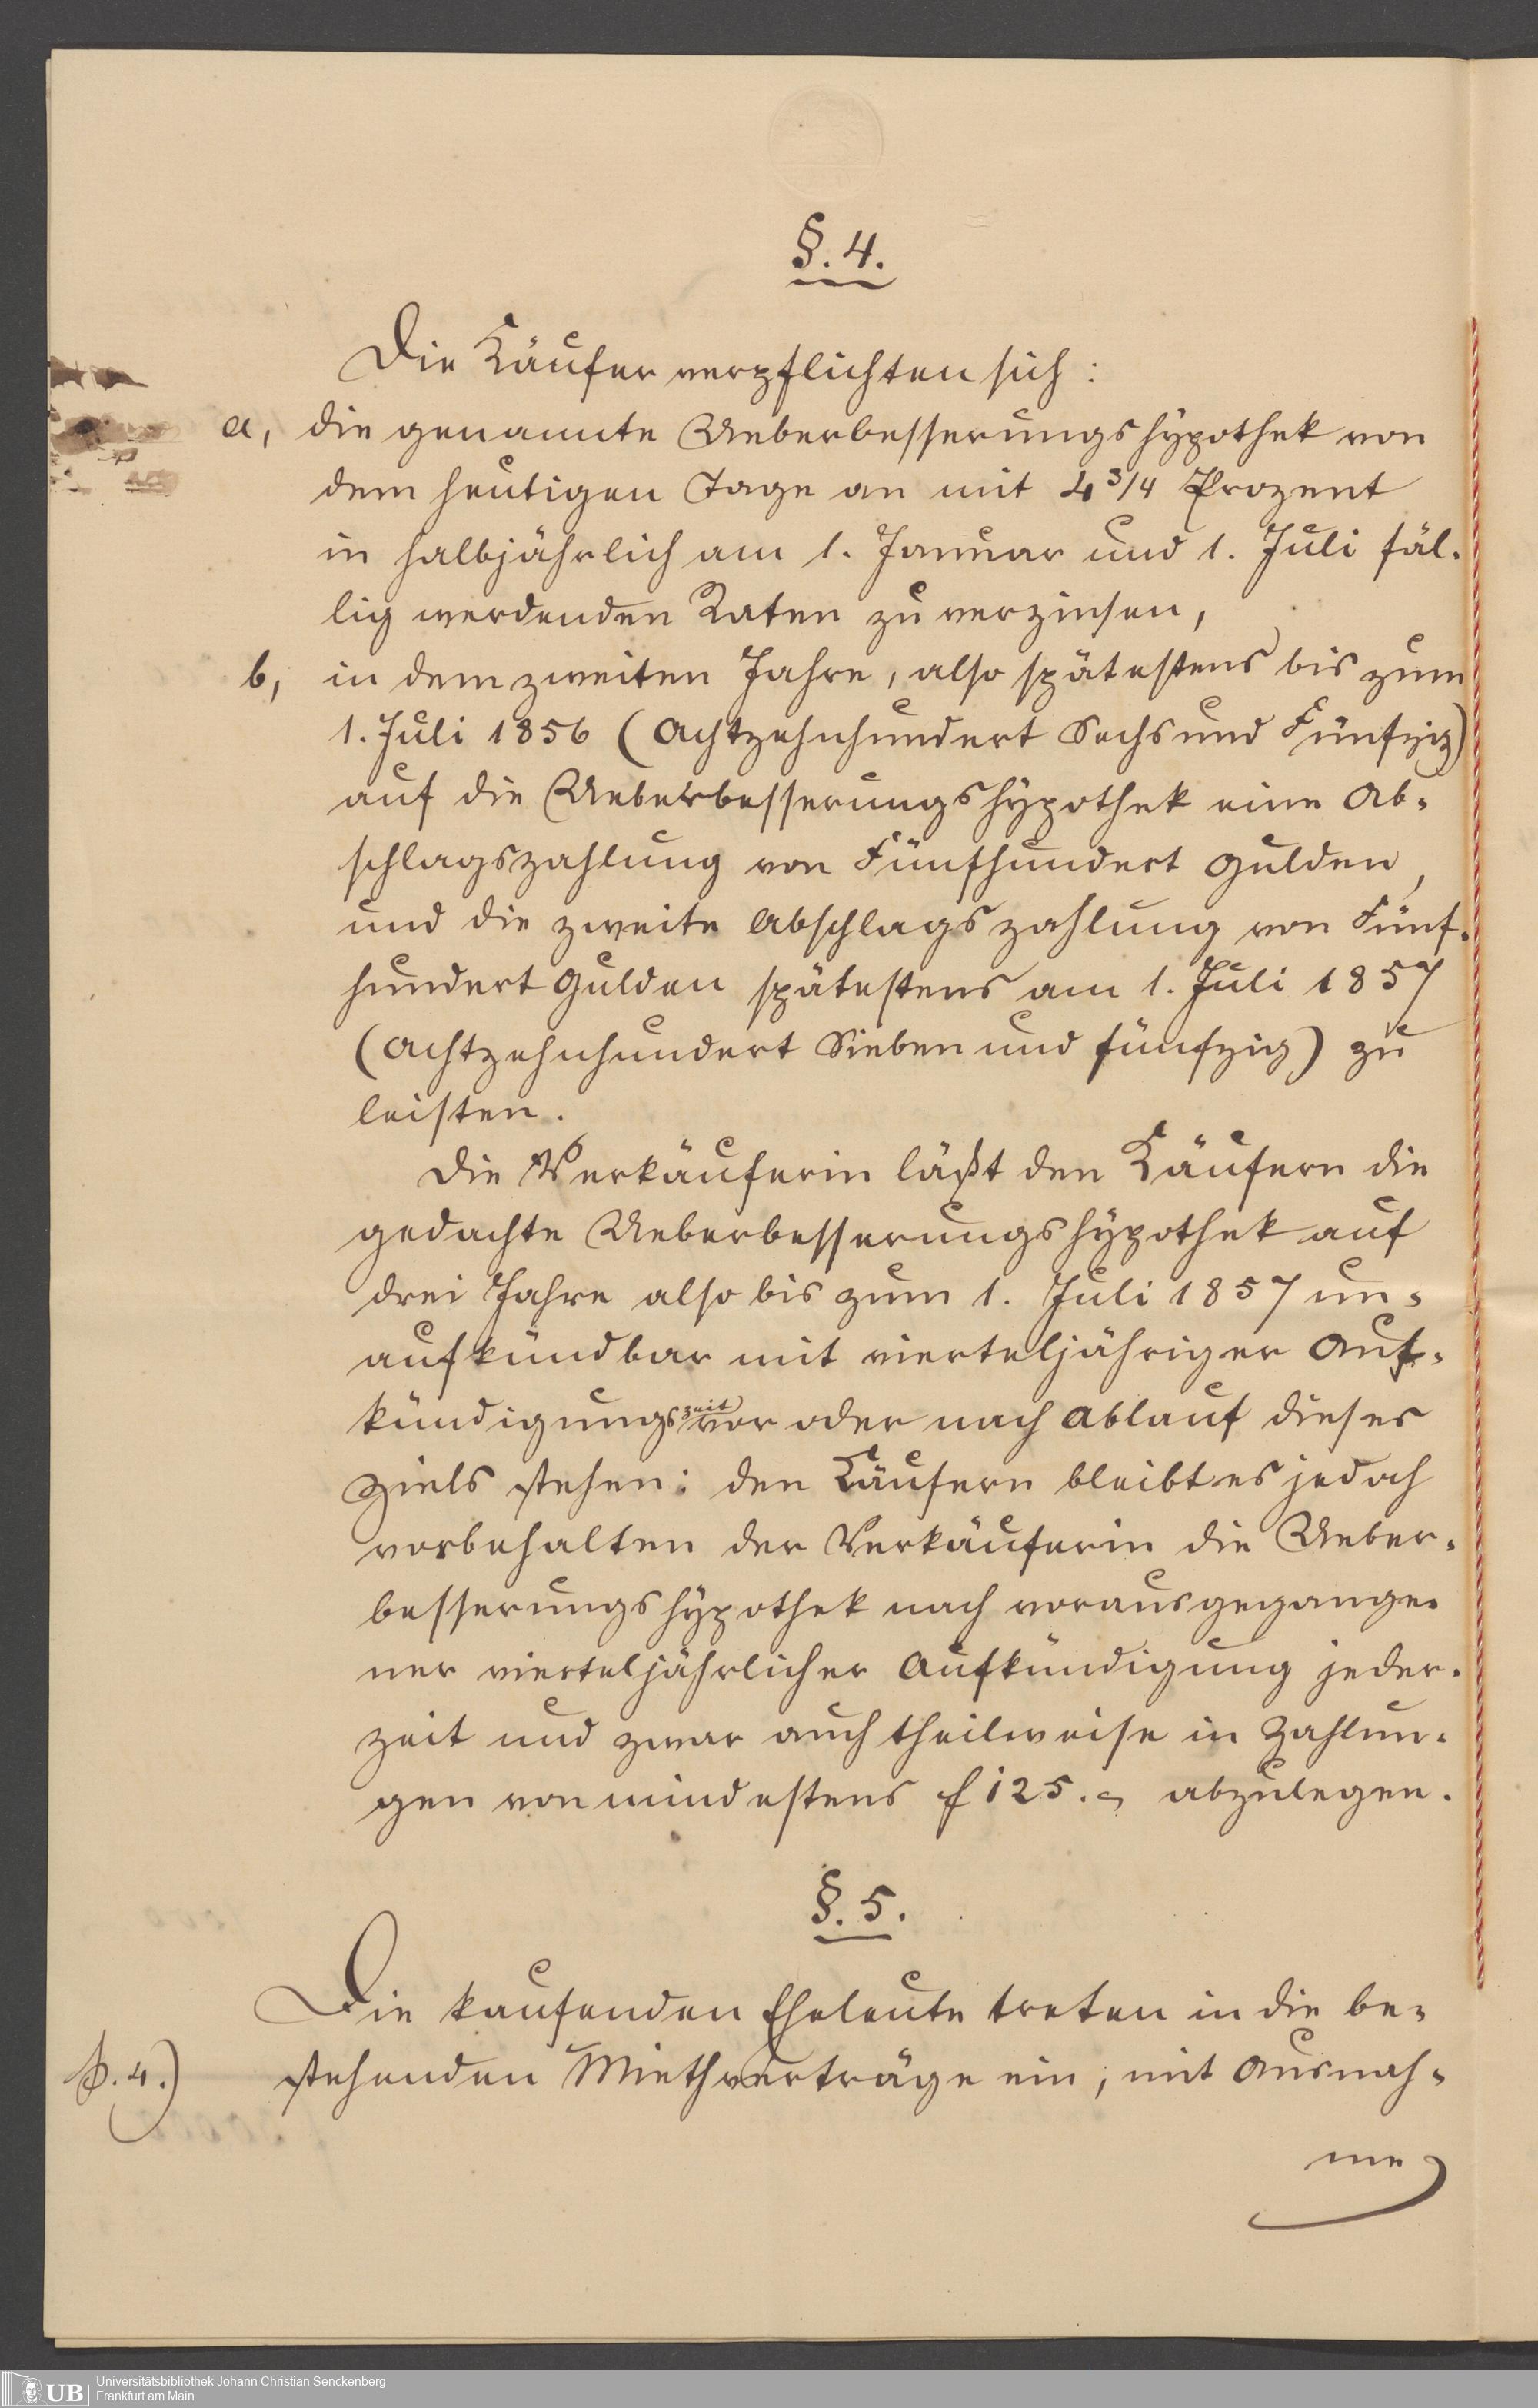 §. 4.
Die Käufer verpflichten sich:
a, die genannte Ueberbesserungshypothek von
dem heutigen Tage an mit 4 3/4 Prozent
in halbjährlich am 1. Januar und 1. Juli fäl-
lig werdenden Raten zu verzinsen,
b, in dem zweiten Jahre, also spätestens bis zum
1. Juli 1856 (Achtzehnhundert Sechs und Fünfzig)
auf die Ueberbesserungshypothek eine Ab-
schlagszahlung von Fünfhundert Gulden,
und die zweite Abschlagszahlung von Fünf-
hundert Gulden spätestens am 1. Juli 1857
(Achtzehnhundert Sieben und fünfzig) zu
leisten.
Die Verkäuferin läßt den Käufern die
gedachte Ueberbesserungshypothek auf
drei Jahre also bis zum 1. Juli 1857 un-
aufkündbar mit vierteljähriger Auf-
kündigungszeit vor oder nach Ablauf dieses
Ziels stehen: den Käufern bleibt es jedoch
vorbehalten der Verkäuferin die Ueber-
besserungshypothek nach vorausgegange-
ner vierteljährlicher Aufkündigung jeder-
zeit und zwar auch theilweise in Zahlun-
gen von mindestens f 125.- abzulegen.
§. 5.
Die kaufenden Eheleute treten in die be-
p. 4.) stehenden Miethverträge ein, mit Ausnah-
me
UB Universitätsbibliothek Johann Christian Senckenberg
Frankfurt am Main